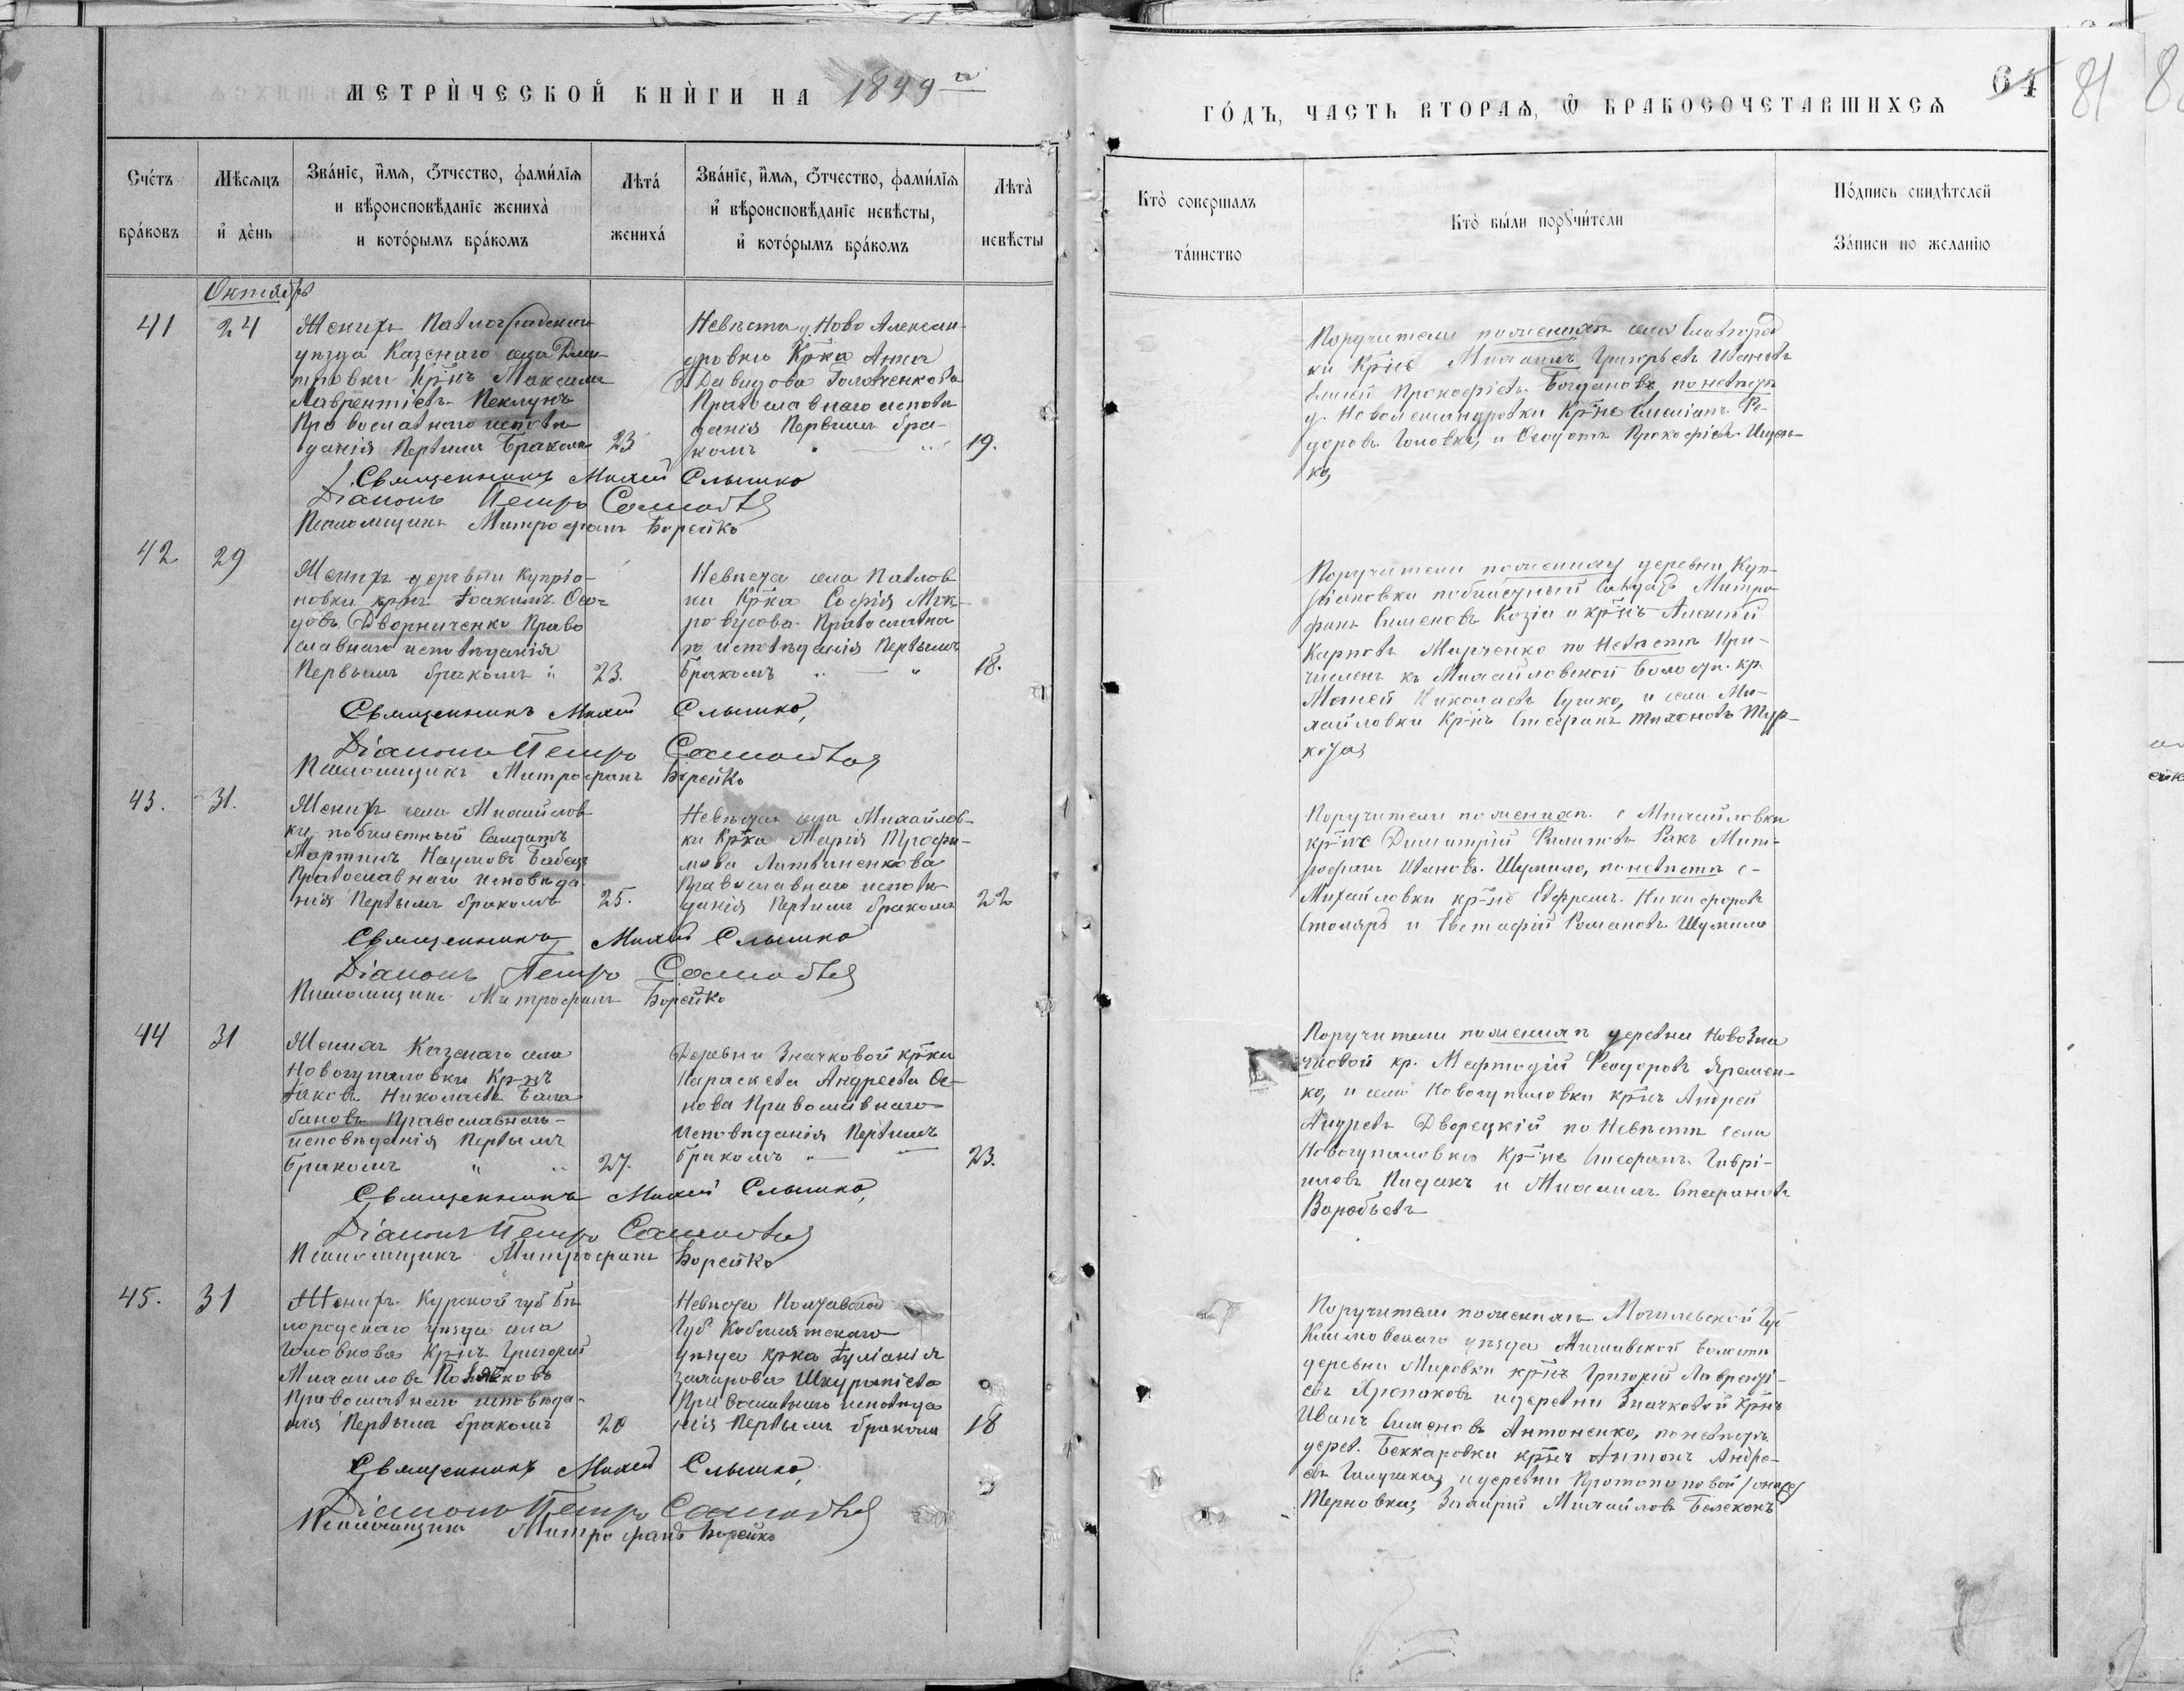 МЕТРИЧЕСКОЙ КНИГИ НА 1899 й
ГОДЪ, ЧАСТЬ ВТОРАѦ, Ѿ БРАКОСОЧЕТАВШИХСѦ
64 81
Счетъ браковъ
Мѣсѧцъ и день
Званіе, имѧ, отчество, фамиліѧ
и вѣроисповѣданіе жениха
и которымъ бракомъ
Лѣта жениха
Званіе, имѧ, отчество, фамиліѧ
и вѣроисповѣданіе невѣсты,
и которымъ бракомъ
Лѣта невѣсты
Кто совершалъ таинство
Кто были порꙋчители
Подпись свидѣтелей
Записи по желанію
Октябрь
41 24
Женихъ Павлоградскаго
уѣзда Казенаго села Дми-
тровки Кр-нъ Максимъ
Лаврентіевъ Пеклунъ
Православнаго исповѣ
данія Первымъ Бракомъ 23
Невѣста д. Ново Алексан-
дровки Кр-ка Анна
Давидова Головченкова
Православнаго исповѣ
данія Первымъ бра-
комъ 19.
Священникъ Михаил Слышко
Діаконъ Петръ Самойл
Псаломщикъ Митрофанъ Борейко
Поручители по женихѣ села
ки Кр-не Михаилъ Григорьевъ Ивановъ
Прокофіевъ Богдановъ, по невѣстѣ
д. Новоалександровки Кр-не Ѳе-
доровъ Головко, и Ѳеодотъ Прокофіевъ Ищен-
ко,
42 29
Женихъ деревни Купріа-
новки кр-нъ Іоакимъ Ѳео-
довъ Дворниченко Право
славнаго исповѣданія
Первымъ бракомъ 23.
Невѣста села Павлов
ки Кр-ка Софія Мок
роусова Православна
го исповѣданія Первымъ
бракомъ 18.
Священникъ Михаил Слышко,
Діаконъ Петръ Самойл
Псаломщикъ Митрофанъ Борейко
Поручители по жениху деревни Куп-
ріановки побилетный Солдатъ Митро
фанъ Симеоновъ Козій и кр-нъ Алексѣй
Карповъ Марченко по Невѣстѣ При-
численъ къ Михайловской волости кр.
Моисей Николаевъ Сушко, и села Ми-
хайловки Кр-нъ Стефанъ Тихоновъ Тур-
43. 31.
Женихъ села Михайлов
ки побилетный Солдатъ
Мартинъ Наумовъ Бабецъ
Православнаго исповѣда
нія Первымъ бракомъ 25.
Невѣста села Михайлов-
ки Кр-ка Марія Трофи-
мова Литвиненкова
Православнаго исповѣ
данія Первымъ бракомъ 22
Священникъ Михаил Слышко
Діаконъ Петръ Самойл
Псаломщикъ Митрофанъ Борейко
Поручители по женихѣ с Михайловки
кр-не Димитрій Филиповъ Ракъ Мит-
рофанъ Ивановъ Шумило, по невѣстѣ с-
Михайловки кр-не Ефремъ Никифоровъ
Столяръ и Евстафій Романовъ Шумило
44 31
Женихъ Казенаго села
Новогупаловки Кр-нъ
Іаковъ Николаевъ Бала
бановъ Православнаго
исповѣданія Первымъ
бракомъ 27.
Деревни Значковой кр-ка
Параскева Андреева Ос-
нова Православнаго
исповѣданія Первымъ
бракомъ 23.
Священникъ Михаил Слышко,
Діаконъ Петръ Самойл
Псаломщикъ Митрофанъ Борейко
Поручители по женихѣ деревни НовоЗна
чковой кр. Мефтодій Ѳеодоровъ Яремен-
ко, и села Новогупаловки кр-нъ Андрей
Андреевъ Дворецкій по Невѣстѣ села
Новогупаловки Кр-не Стефанъ Гаврі-
иловъ Пидакъ и Михаилъ Стефановъ
Воробьевъ
45. 31
Женихъ Курской губ Бѣ
лородскаго уѣзда села
Головкова Кр-нъ Григорій
Михаиловъ Поляковъ
Православнаго исповѣда-
нія Первымъ бракомъ 20
Невѣста Полтавской
Губ Кобелятскаго
уѣзда кр-ка Іуліанія
Захарова Шкурапіева
Православнаго исповѣда
нія Первымъ бракомъ 18
Священникъ Михаил Слышко,
Діаконъ Петръ Самойл
Псаломщикъ Митрофанъ Борейко
Поручители по женихѣ Могилевской Губ
Климовскаго уѣзда волости
деревни Мировки кр-нъ Григорій Лаврентi-
евъ Хропаковъ и деревни Значковой Кр-нъ
Иванъ Симеоновъ Антоненко, по невѣстѣ
дерев. Беккаровки кр-нъ Антонъ Андре-
евъ Галушка, и деревни Протопоповой
Терновки, Захарій Михайловъ